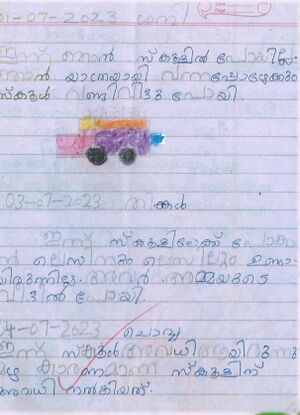 01-07-2023 ശനി
ഇന്ന് ഞാൻ സ്കൂളിൽ പോയില്ല.
ഞാൻ യാത്രയായി വന്നപ്പോഴേക്കും
സ്കൂൾ വണ്ടി വിട്ടു പോയി.
03-07-2023 തിങ്കൾ
ഇന്ന് സ്കൂളിലേക്ക് പോകാ
അമ്മയുടെ
വീട്ടിൽ പോയി.
04-07-2023 ചൊവ്വ
ഇന്ന് സ്കൂൾ അവധി ആയിരുന്നു
മഴ കാരണമാണ് സ്കൂളിന്
അവധി നൽകിയത്.